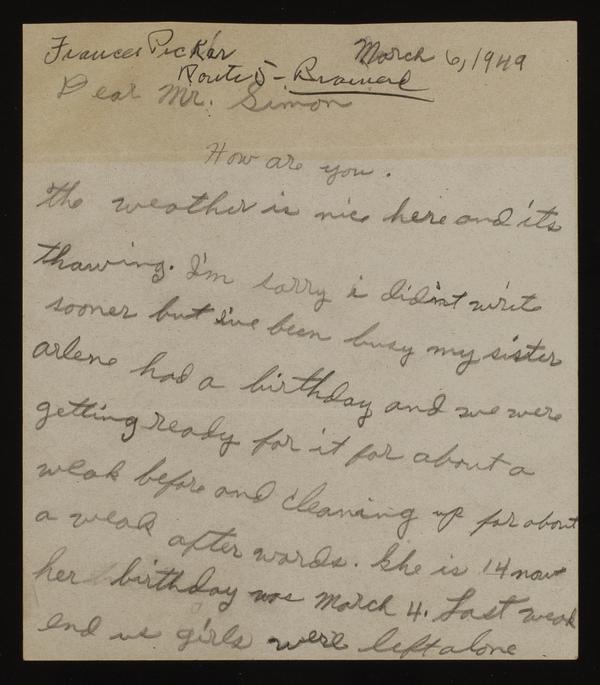 Frances Pickar March 6, 1949
Route 5 - Brainerd
Dear Mr. Simon
How are you.
the weather is nice here and its
thawing. I'm sorry i didn't write
sooner but i've been busy my sister
arlene had a birthday and we were
getting ready for it for about a
weak before and cleaning up for about
a weak after words. She is 14 now
her birthday was March 4. Last weak
end us girls were left alone